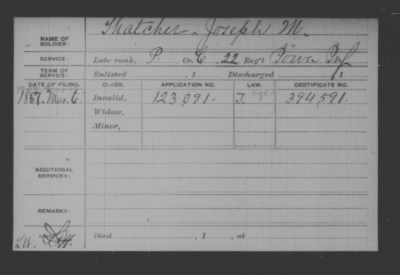 Thatcher, Joseph M.
NAME OF SOLDIER:
SERVICE: Late rank, P. Co. C, 22 Reg't Iowa Inf
TERM OF SERVICE: Enlisted , 1 Discharged , 1
DATE OF FILING. CLASS. APPLICATION NO. LAW. CERTIFICATE NO.
1867. Mar. 6. Invalid, 123,091. 394,591.
Widow,
Minor,
ADDITIONAL SERVICES:
REMARKS:
Died , 1 , at